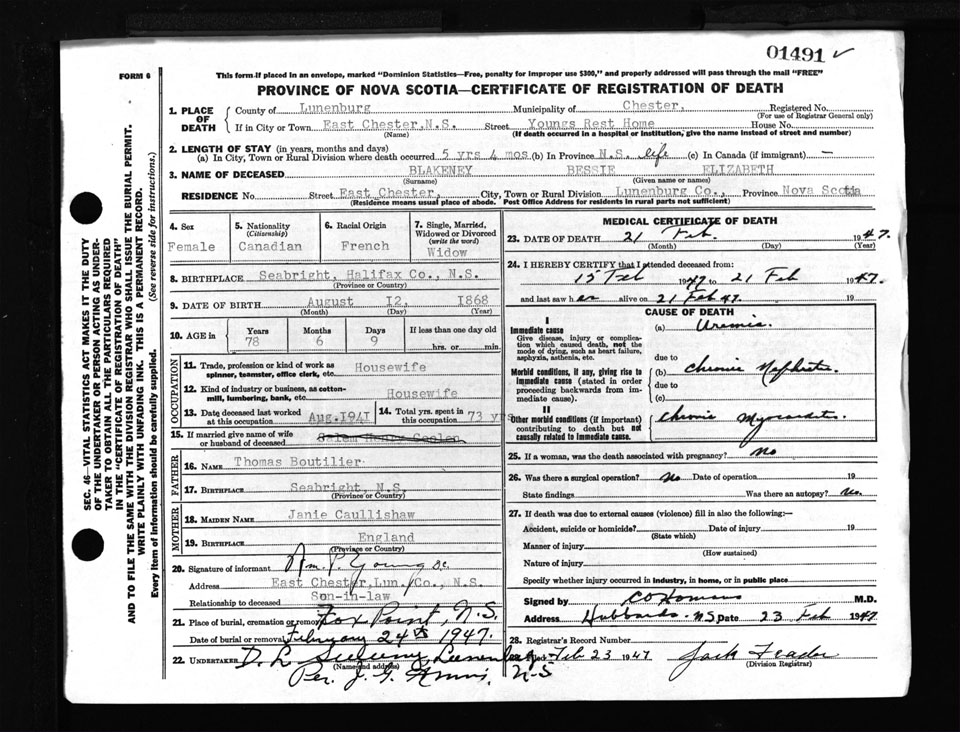 01491 ✓
FORM 6
This form if placed in an envelope, marked "Dominion Statistics—Free, penalty for improper use $300," and properly addressed will pass through the mail "FREE"
PROVINCE OF NOVA SCOTIA—CERTIFICATE OF REGISTRATION OF DEATH
SEC. 46—VITAL STATISTICS ACT MAKES IT THE DUTY
OF THE UNDERTAKER OR PERSON ACTING AS UNDER-
TAKER TO OBTAIN ALL THE PARTICULARS REQUIRED
IN THE "CERTIFICATE OF REGISTRATION OF DEATH"
AND TO FILE THE SAME WITH THE DIVISION REGISTRAR WHO SHALL ISSUE THE BURIAL PERMIT.
WRITE PLAINLY WITH UNFADING INK. THIS IS A PERMANENT RECORD.
Every item of information should be carefully supplied. (See reverse side for instructions.)
1. PLACE OF DEATH
County of Lunenburg Municipality of Chester, Registered No.
(For use of Registrar General only)
If in City or Town East Chester, N.S. Street Youngs Rest Home House No.
(Name) (If death occurred in a hospital or institution, give the name instead of street and number)
2. LENGTH OF STAY (in years, months and days)
(a) In City, Town or Rural Division where death occurred 5 yrs 4 mos (b) In Province N.S. life (c) In Canada (if immigrant) —
3. NAME OF DECEASED BLAKENEY BESSIE ELIZABETH
(Surname) (Given name or names)
RESIDENCE No. Street East Chester, City, Town or Rural Division Lunenburg Co., Province Nova Scotia
(Residence means usual place of abode. Post Office Address for residents in rural parts not sufficient)
4. Sex
Female
5. Nationality
(Citizenship)
Canadian
6. Racial Origin
French
7. Single, Married,
Widowed or Divorced
(write the word)
Widow
8. BIRTHPLACE Seabright, Halifax Co., N.S.
(Province or Country)
9. DATE OF BIRTH August I2, I868
(Month) (Day) (Year)
10. AGE in Years Months Days If less than one day old
78 6 9 hrs. or min.
OCCUPATION
11. Trade, profession or kind of work as Housewife
spinner, teamster, office clerk, etc.
12. Kind of industry or business, as cotton-
mill, lumbering, bank, etc. Housewife
13. Date deceased last worked
at this occupation Aug. I94I
14. Total yrs. spent in
this occupation 73 yrs
15. If married give name of wife
or husband of deceased
FATHER
16. NAME Thomas Boutilier
17. BIRTHPLACE Seabright, N.S.
(Province or Country)
MOTHER
18. MAIDEN NAME Janie Caullishaw
19. BIRTHPLACE England
(Province or Country)
20. Signature of informant Wm. P. Young
Address East Chester, Lun. Co., N.S.
Relationship to deceased Son-in-law
21. Place of burial, cremation or removal Fox Point, N.S.
Date of burial or removal February 24th 1947.
22. UNDERTAKER D. L.
(Name and address)
Per. J. G. N.S
MEDICAL CERTIFICATE OF DEATH
23. DATE OF DEATH 21 Feb. 1947.
(Month) (Day) (Year)
24. I HEREBY CERTIFY that I attended deceased from:
15 Feb 1947 to 21 Feb 1947
and last saw her alive on 21 Feb 47. 19
CAUSE OF DEATH
I
Immediate cause
Give disease, injury or complica-
tion which caused death, not the
mode of dying, such as heart failure,
asphyxia, asthenia, etc.
(a) Uremia.
due to
Morbid conditions, if any, giving rise to
immediate cause (stated in order
proceeding backwards from im-
mediate cause).
(b) Chronic Nephritis.
due to
(c)
II
Other morbid conditions (if important)
contributing to death but not
causally related to immediate cause.
Chronic Myocarditis.
25. If a woman, was the death associated with pregnancy? No
26. Was there a surgical operation? No Date of operation 19
State findings Was there an autopsy? No.
27. If death was due to external causes (violence) fill in also the following:—
Accident, suicide or homicide? Date of injury 19
(State which)
Manner of injury
(How sustained)
Nature of injury
Specify whether injury occurred in industry, in home, or in public place
Signed by M.D.
Address Hubbards. N.S. Date 23 Feb 1947
28. Registrar's Record Number
Filed Feb 23 1947 Jack
(Division Registrar)